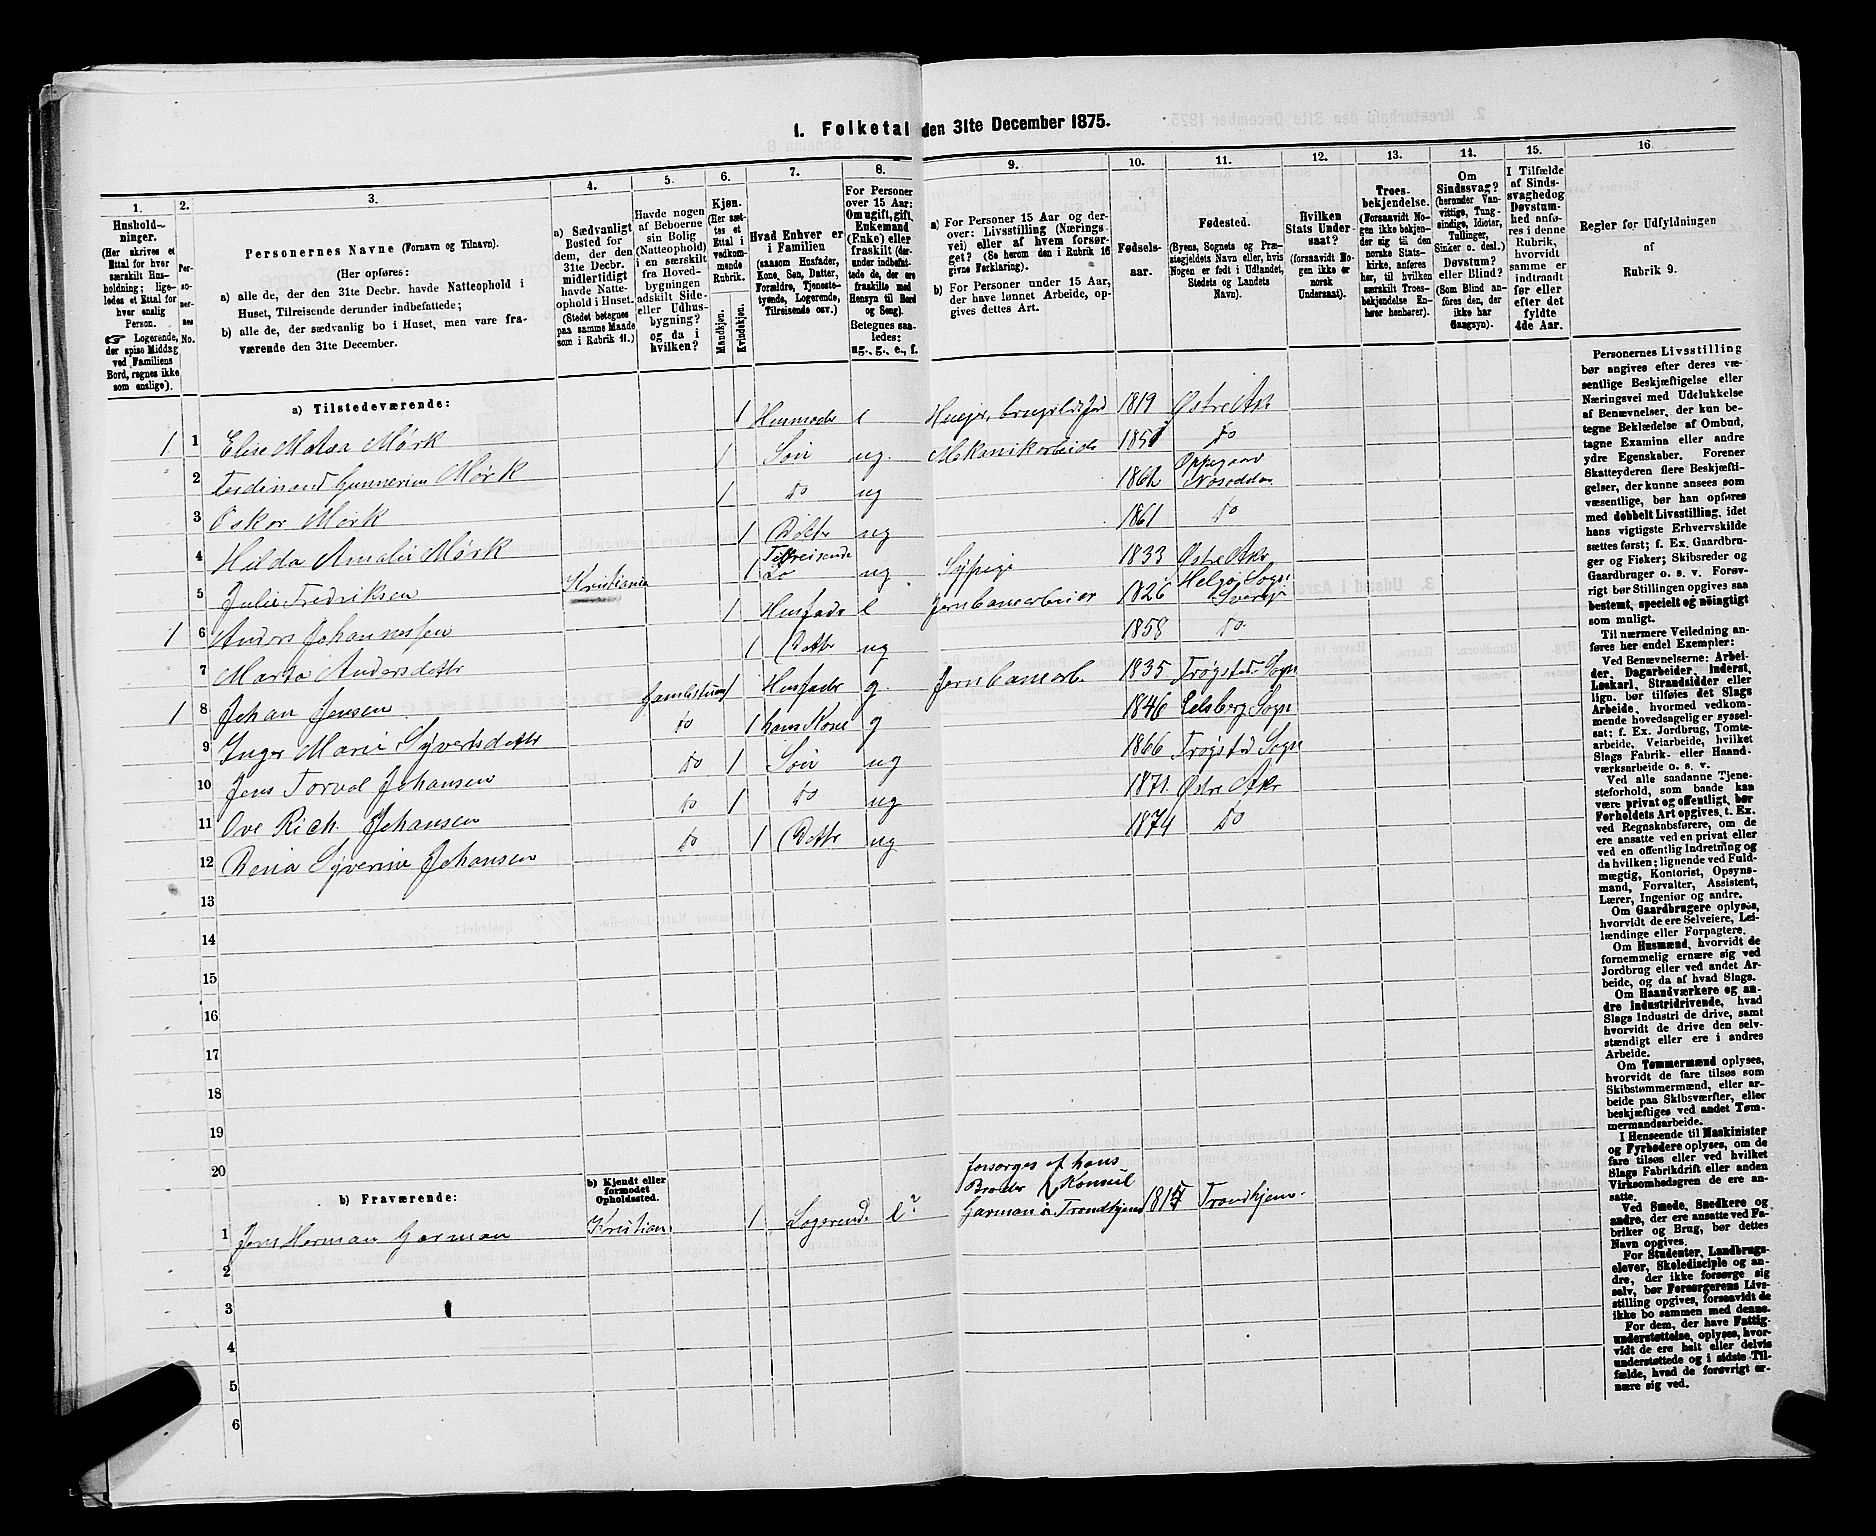 1. Folketal den 31te December 1875.
1.
Hushold-
ninger.
(Her skrives et
Ettal for hver
særskilt Hus-
holdning; lige-
ledes et Ettal for
hver enslig
Person.
Logerende,
der spise Middag
ved Familiens
Bord, regnes ikke
som enslige).
2.
Per-
so-
ner-
nes
No.
3.
Personernes Navne (Fornavn og Tilnavn).
(Her opføres:
a) alle de, der den 31te Decbr. havde Natteophold i
Huset, Tilreisende derunder indbefattede;
b) alle de, der sædvanlig bo i Huset, men vare fra-
værende den 31te December.
4.
a) Sædvanligt
Bosted for
dem, der den
31te Decbr.
midlertidigt
havde Natte-
ophold i Huset.
(Stedet betegnes
paa samme Maade
som i Rubrik 11.)
5.
Havde nogen
af Beboerne
sin Bolig
(Natteophold)
i en særskilt
fra Hoved-
bygningen
adskilt Side-
eller Udhus-
bygning?
og da i
hvilken?
6.
Kjøn.
(Her sæt-
tes et
Ettal i
vedkom-
mende
Rubrik.
Mandkjøn.
Kvindekjøn.
7.
Hvad Enhver er
i Familien
(saasom Husfader,
Kone, Søn, Datter,
Forældre, Tjeneste-
tyende, Logerende,
Tilreisende osv.)
8.
For Personer
over 15 Aar:
Om ugift, gift,
Enkemand
(Enke) eller
fraskilt (der-
under indbefat-
tede de, der ere
fraskilte med
Hensyn til Bord
og Seng).
Betegnes saa-
ledes:
ug., g., e., f.
9.
a) For Personer 15 Aar og der-
over: Livsstilling (Nærings
vei) eller af hvem forsør-
get? (Se herom den i Rubrik 16
givne Forklaring).
b) For Personer under 15 Aar,
der have lønnet Arbeide, op-
gives dettes Art.
10.
Fødsels-
aar.
11.
Fødested.
(Byens, Sognets og Præ-
stegjeldets Navn, eller, hvis
Nogen er født i Udlandet,
Stedets og Landets
Navn).
12.
Hvilken
Stats Under-
saat?
(forsaavidt No-
gen ikke er
norsk
Undersaat).
13.
Troes-
bekjendelse.
(Forsaavidt No-
gen ikke bekjen-
der sig til den
norske Stats-
kirke, anføres
her, til hvilken
særskilt Troes-
bekjendelse En-
hver henhører).
14.
Om
Sindssvag?
(herunder Van-
vittige, Tung-
sindige, Idioter,
Tullinger,
Sinker o. desl.)
Døvstum?
eller Blind?
(Som Blind an-
føres den, der
ikke har
Gangsyn).
15.
I Tilfælde
af Sinds-
svaghed og
Døvstum-
hed anfø-
res i denne
Rubrik,
hvorvidt
samme er
indtraadt
før eller
efter det
fyldte
4de Aar.
16.
Regler for Udfyldningen
af
Rubrik 9.
a) Tilstedeværende:
1 1 Elise Mørk 1 Husmoder e 1819 Østre Aker
2 Ferdinand Gunnerius Mørk 1 Søn ug. Mekanikarbeider do
3 Oskar Mørk 1 do ug Oppegaard Næsodden
4 Hilda Amalie Mørk 1 Datter ug 1861 do
5 Julie Fredriksen Kristiania 1 Tilreisende do ug. Sypige 1833 Østre Aker
1 6 Anders Johannessen 1 Husfader e Jernbanearbeider 1826 Sogn Sverige
7 Marta Andersdatter 1 Datter ug 1858 do
1 8 Johan Jensen 1 Husfader g. Jernbanearb. 1835 Trøgstad Sogn
9 Inger Marie Syvertsdatter do 1 hans Kone g 1846 Eidsberg Sogn
10 Jens Torval Johansen do 1 Søn ug 1866 Trøgstad Sogn
11 Ove Rich. Johansen do 1 do ug 1871 Østre Aker
12 Syverine Johansen do 1 Datter ug 1874 do
13
14
15
16
17
18
19
20
b) Fraværende:
b) Kjendt eller
formodet
Opholdssted.
1 Jens Herman Garman Kristiania 1 Logerende e? forsørges af hans Broder Konsul Garman i Trondhjem Trondhjem
2
3
4
5
6
Personernes Livsstilling
bør angives efter deres væ-
sentlige Beskjæftigelse eller
Næringsvei med Udelukkelse
af Benævnelser, der kun be-
tegne Beklædelse af Ombud,
tagne Examina eller andre
ydre Egenskaber. Forener
Skatteyderen flere Beskjæfti-
gelser, der kunne ansees som
væsentlige, bør han opføres
med dobbelt Livsstilling, idet
hans vigtigste Erhvervskilde
sættes først; f. Ex. Gaardbru-
ger og Fisker; Skibsreder og
Gaardbruger o. s. v. Forøv-
rigt bør Stillingen opgives saa
bestemt, specielt og nøiagtigt
som muligt.
Til nærmere Veiledning an-
føres her endel Exempler:
Ved Benævnelserne: Arbei-
der, Dagarbeider, Inderst,
Løskarl, Strandsidder eller
lign. bør tilføies det Slags
Arbeide, hvormed vedkom-
mende hovedsagelig er syssel-
sat; f. Ex. Jordbrug, Tomte-
arbeide, Veiarbeide, hvilket
Slags Fabrik- eller Haand-
værksarbeide o. s. v.
Ved alle saadanne Tjene-
steforhold, som baade kan
være privat og offentligt, bør
Forholdets Art opgives, t. Ex.
ved Regnskabsførere, om de
ere ansatte ved en privat eller
ved en offentlig Indretning og
da hvilken; lignende ved Fuld-
mægtig, Kontorist, Opsyns-
mand, Forvalter, Assistent,
Lærer, Ingeniør og andre.
Om Gaardbrugere oplyses,
hvorvidt de ere Selveiere, Lei-
lændinge eller Forpagtere.
Om Husmænd, hvorvidt de
fornemmelig ernære sig ved
Jordbrug eller ved andet Ar-
beide, og da af hvad Slags.
Om Haandværkere og an-
dre Industridrivende, hvad
Slags Industri de drive, samt
hvorvidt de drive den selv-
stændigt eller ere i andres
Arbeide.
Om Tømmermænd oplyses,
hvorvidt de fare tilsøs som
Skibstømmermænd, eller ar-
beide paa Skibsværfter, eller
beskjæftiges ved andet Tøm-
mermandsarbeide.
I Henseende til Maskinister
og Fyrbødere oplyses, om de
fare tilsøs eller ved hvilket
Slags Fabrikdrift eller anden
Virksomhedsgren de ere an-
satte.
Ved Smede, Snedkere og
andre, der ere ansatte ved Fa-
briker og Brug, bør dettes
Navn opgives.
For Studenter, Landbrugs-
elever, Skoledisciple og an-
dre, der ikke forsørge sig
selv, bør Forsørgerens Livs-
stilling opgives, forsaavidt de
ikke bo sammen med denne.
For dem, der have Fattig-
understøttelse, oplyses, hvor-
vidt de ere helt eller delvis
understøttede og i sidste Til-
fælde, hvad de forøvrigt er-
nære sig ved.